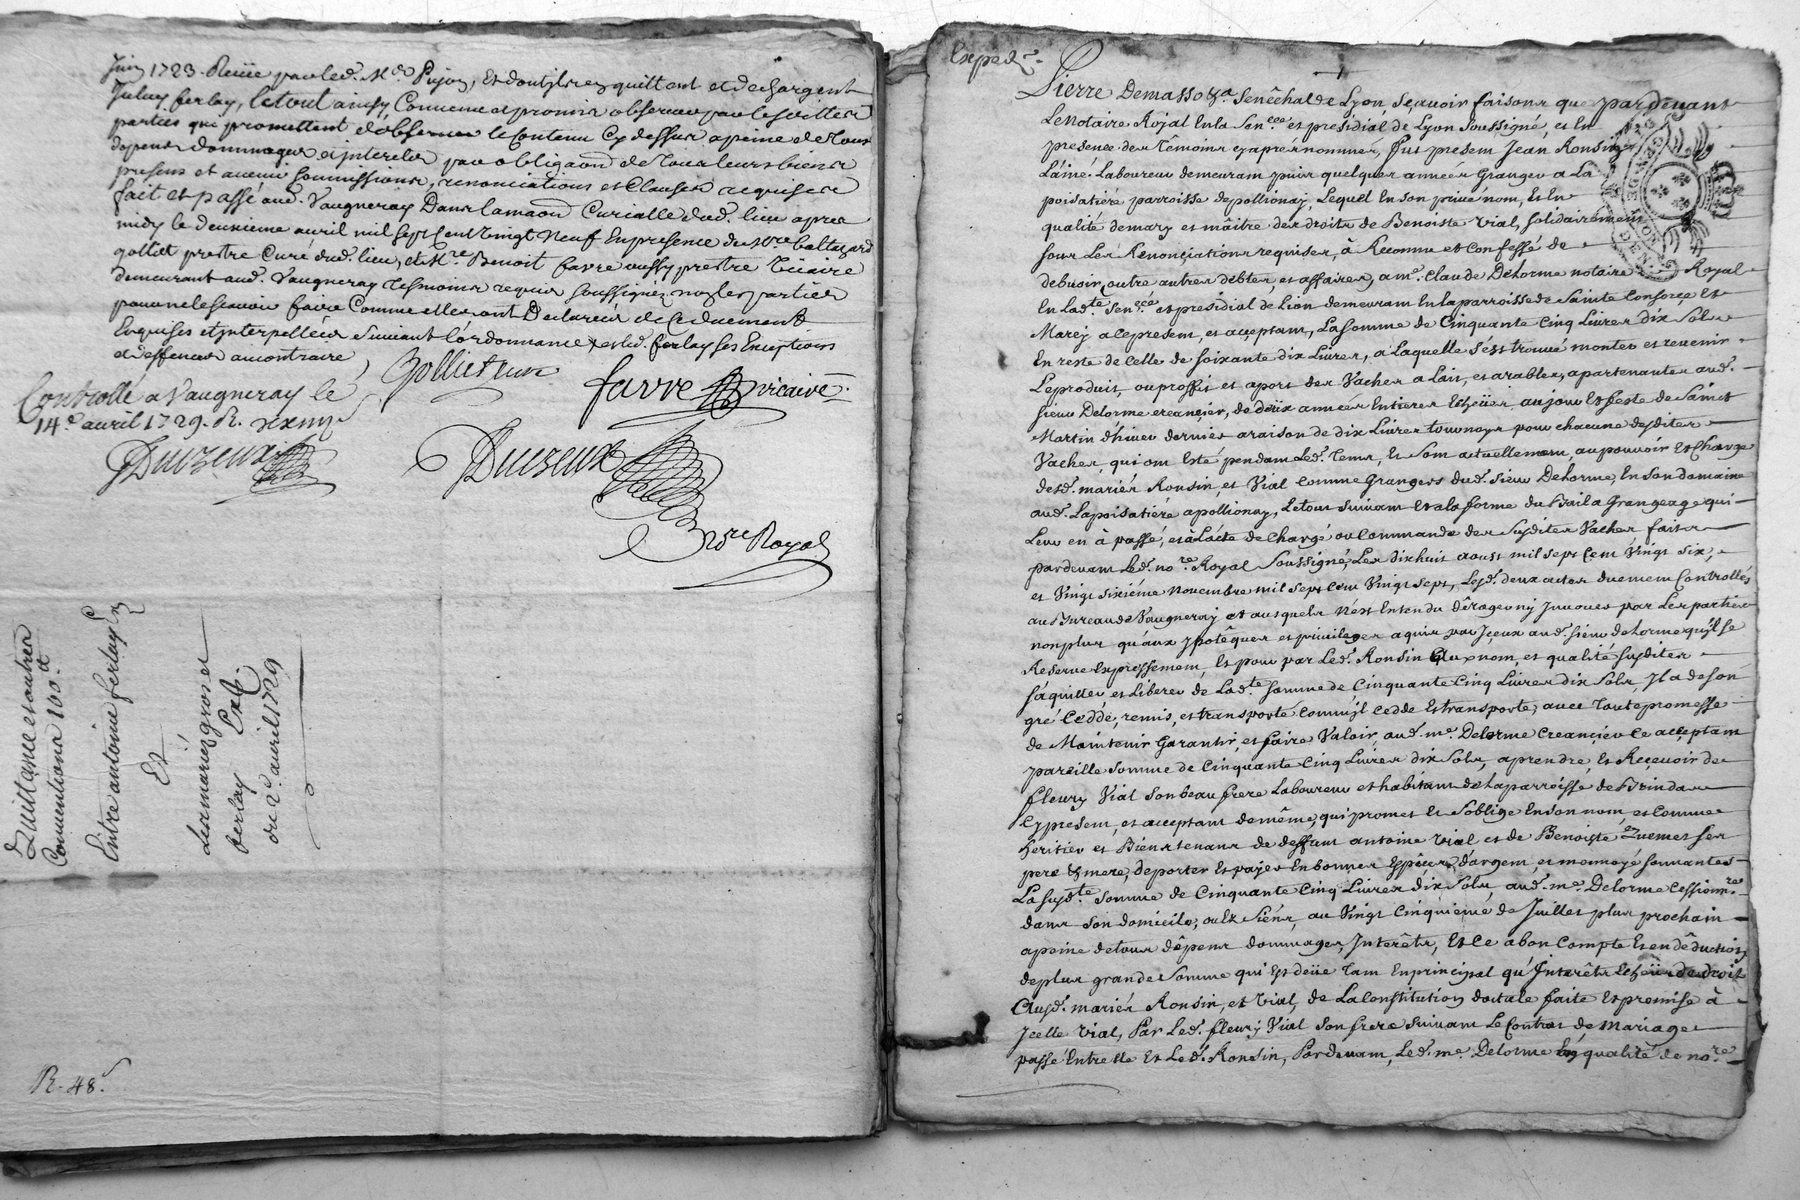 Juin 1723. Reçüe par led. Mr. de Pujon, et dont il en quittent et dechargent
ferlay, le tout ainsy Convenu et promis observer par lesdittes
parties qui promettent d'observer le Contenu Cy dessus a peine de tous
depens dommages et interets par obligaon de tous leurs biens
presens et avenir soumissions, renonciations et Clauses requises
fait et passé aud. Vaugneray Dans la maon Curialle dud. lieu apres
midy le deuxieme avril mil sept Cent vingt Neuf En presence de Mre baltazard
golliet prestre Curé dud. lieu, et Mre Benoit favre aussy prestre vicaire
demeurant aud. Vaugneray tesmoins requis soussignez non les parties
pour ne le scavoir faire Comme elles ont Declarees de Ce duement
Enquises et interpellées suivant l'ordonnance et led. ferlay ses Exceptions
et deffences au contraire
Golliet curé
favre vicaire
Controllé a Vaugneray le
14e avril 1729. R.
Duizeux
Duizeux
Nore Royal
Quittance et autres
Conventions 100tt
Entre antoine ferlay
Et
Les mariés gros et
ferlay Exp.
du 2e avril 1729
R. 48s
Exped.
Pierre Demasso &a Senêchal de Lyon Sçavoir faisons que pardevant
Le Notaire Royal En la Sencée et presidial de Lyon Soussigné, et En
presence des Témoins cy apres nommés, fut present Jean Ronsin
L'ainé Laboureur demeurant puis quelques années Granger a La
poisatiére parroisse de pollionay, Lequel En son privé nom, et En
qualité de mary et maitre des droits de Benoiste Vial, solidairement
sous Les Rénonçiations requises, à Reconnu et Confessé de
debvoir, outre autres debtes et affaires, a me. Claude Delorme notaire Royal
En Ladte Sencée et presidial de Lion demeurant En la parroisse de Sainte Consorce Et
Marcy a ce present, et acçeptant, La somme de Cinquante Cinq Livres dix Sols
En reste de Celle de soixante dix Livres, a Laquelle s'est trouvé monter et revenir
Le produit, ou proffit et aport des Vaches a Lait, et arables, apartenantes aud.
Sieur Delorme creançier, de deux années Entieres Echeües au jour Et feste de Saint
Martin d'hiver dernier a raison de dix Livres tournois pour chacune desdites
Vaches, qui ont Esté pendant Led. Tems, et sont actuellement, au pouvoir Et Charge
desd. mariés Ronsin, et Vial comme Grangers dud. Sieur Delorme, En son domaine
aud. La poisatiére a pollionay, Le tout suivant et a la forme du Bail a Grangeage qui
Leur en à passé, et à L'acte de Chargé ou Commande des Susdites Vaches faits
pardevant Led. nore Royal Soussigné, Les dixhuit aoust mil sept Cent Vingt Six,
et Vingt sixiéme Novembre mil sept Cent Vingt Sept, Lesd. deux actes duement Controllés
au Bureau de Vaugneray et ausquels N'est Entendu dêroger ny Innover par Les parties
non plus qu'aux ypotêques et privileges aquis par Iceux aud. Sieur delorme qu'il se
Reserve Expressement, Et pour par Led. Ronsin aux nom, et qualité susdites
s'aquitter et Liberer de Ladte somme de Cinquante Cinq Livres dix Sols, Il a de son
gré Ceddé, remis, et transporté comm'il cedde Et transporte, avec Toute promesse
de Maintenir Garantir et faire Valoir, aud. me. Delorme Creançier Ce acçeptant
pareille somme de Cinquante Cinq Livres dix Sols, a prendre, Et Reçevoir de
fleury Vial son beau frere Laboureur et habitant de La parroisse de Brindas
Cy present, et acceptant de même, qui promet et S'oblige En son nom, et Comme
heritier et Bientenant de deffunt antoine Vial et de Benoiste Zuemet ses
pere & mere, de porter Et payer En bonnes Espêces d'argent, et monnoyé sonnantes
La susdte somme de Cinquante Cinq Livres dix Sols, aud. me. Delorme Cessionre
dans son domicile, ou Es Siens, au Vingt Cinquiéme de Juillet plus prochain
a peine de tous dêpens dommages, Interêts, Et Ce a bon Compte Et en dêduction
de plus grande Somme qui Est deüe Tant En principal qu'Interêts Echeüs de droit
Ausd. mariés Ronsin, et Vial, de La Constitution dottale faite Et promise à
Icelle Vial, Par Led. fleury Vial son frere suivant Le Contrat de Mariage
passé Entr'elle Et Led. Ronsin, Pardevant, Led. me Delorme En qualité de nore